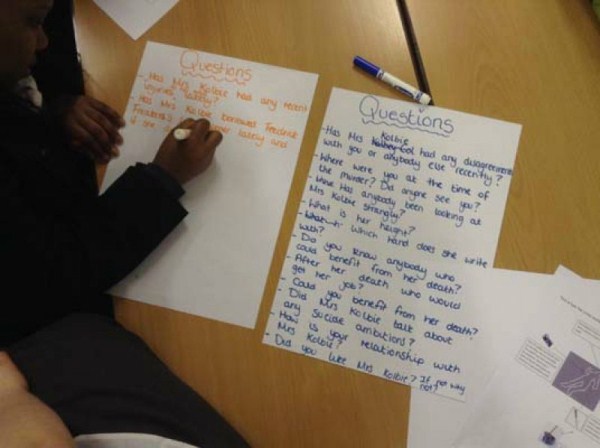 Questions
- Has Mrs Kolbie had any recent
injuries lately?
- Has Mrs Kolbie borrowed Frederick
lately and
if so
Questions
Kolbie
- Has Mrs had any disagreements
with you or anybody else recently?
- Where were you at the time of
the murder? Did anyone see you?
- Has anybody been looking at
Mrs Kolbie strangly?
- What is her height?
- Which hand does she write
with?
- Do you know anybody who
could benefit from her death?
- After her death who would
get her job?
- Could you benefit from her death?
- Did Mrs Kolbie talk about
any suicide ambitions?
- How is your relationship with
Mrs Kolbie?
- Did you like Mrs Kolbie? If not why
not?